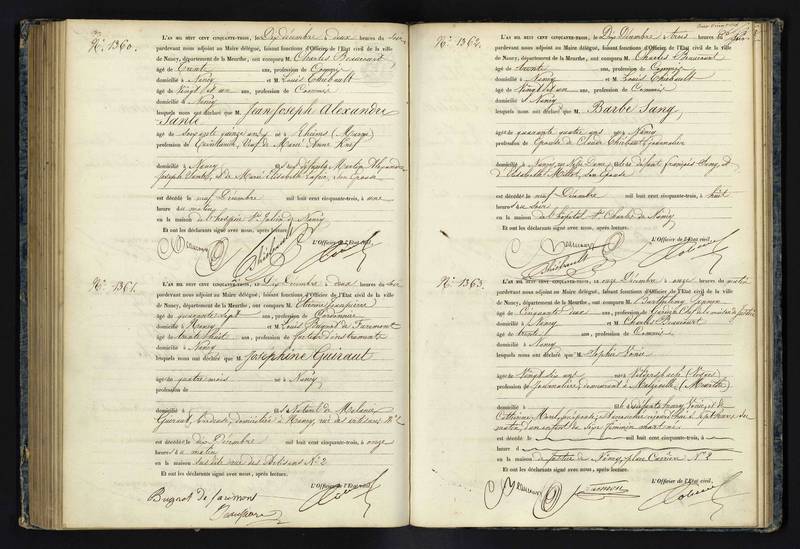 N.° 1360.
L'AN MIL HUIT CENT CINQUANTE-TROIS, le Dix décembre à deux heures du soir
pardevant nous adjoint au Maire délégué, faisant fonctions d'Officier de l'Etat civil de la ville
de Nancy, département de la Meurthe, ont comparu M. Charles Beaucourt
âgé de trente ans, profession de Commis
domicilié à Nancy et M. Louis Thiébault
âgé de Vingt et un ans, profession de Commis
domicilié à Nancy
lesquels nous ont déclaré que M. Jean Joseph Alexandre
âgé de soixante quinze ans, né à Rheims (Marne)
profession de Veuf de Marie Anne
domicilié à Nancy fils de défunts Martin Alexandre
Joseph et de Marie Elisabeth son Epouse
est décédé le neuf Décembre mil huit cent cinquante-trois, à une
heure du matin
en la maison de l'hospice St Julien de Nancy
Et ont les déclarants signé avec nous, après lecture.
L'Officier de l'Etat civil,
Thiébault
N.° 1361.
L'AN MIL HUIT CENT CINQUANTE-TROIS, le Dix Décembre à deux heures du soir
pardevant nous adjoint au Maire délégué, faisant fonctions d'Officier de l'Etat civil de la ville
de Nancy, département de la Meurthe, ont comparu M. Etienne
âgé de quarante sept ans, profession de Cordonnier
domicilié à Nancy et M. Louis Bugnot de Farémont
âgé de trente huit ans, profession de facteur d'instruments
domicilié à Nancy
lesquels nous ont déclaré que M. Joséphine Guiraut
âgé de quatre mois né à Nancy
profession de
domicilié à fils Naturel de Mélanie
Guiraut, brodeuse, domiciliée à Nancy, rue des artisans N° 2
est décédé le dix Décembre mil huit cent cinquante-trois, à onze
heures du matin
en la maison susdite rue des Artisans N° 2
Et ont les déclarants signé avec nous, après lecture.
L'Officier de l'Etat civil,
Bugnot de farémont
N.° 1362.
L'AN MIL HUIT CENT CINQUANTE-TROIS, le Dix Décembre à trois heures du soir
pardevant nous adjoint au Maire délégué, faisant fonctions d'Officier de l'Etat civil de la ville
de Nancy, département de la Meurthe, ont comparu M. Charles Beaucourt
âgé de trente ans, profession de Commis
domicilié à Nancy et M. Louis Thiébault
âgé de Vingt et un ans, profession de Commis
domicilié à Nancy
lesquels nous ont déclaré que M. Barbe Sang
âgé de quarante quatre ans née à Nancy
profession de Epouse de Thiébaut journalier
domicilié à Nancy fille de défunt François Sang et
d'Elisabeth Millot, son Epouse
est décédé le neuf Décembre mil huit cent cinquante-trois, à huit
heures du soir
en la maison de l'hôpital St Charles de Nancy
Et ont les déclarants signé avec nous, après lecture.
L'Officier de l'Etat civil,
Thiébault
N.° 1363.
L'AN MIL HUIT CENT CINQUANTE-TROIS, le onze Décembre à onze heures du matin
pardevant nous adjoint au Maire délégué, faisant fonctions d'Officier de l'Etat civil de la ville
de Nancy, département de la Meurthe, ont comparu M. Barthélemy
âgé de Cinquante deux ans, profession de Gardien Chef de la maison de justice
domicilié à Nancy et Charles Beaucourt
âgé de trente ans, profession de Commis
domicilié à Nancy
lesquels nous ont déclaré que M. Sophie
âgé de Vingt six ans née à (Vosges)
profession de journalière, demeurant à Malzéville (Meurthe)
domicilié à fils de défunts
Catherine est accouchée aujourd'hui à sept heures du
matin, d'un enfant du sexe féminin mort né
est décédé le mil huit cent cinquante-trois, à
heure d
en la maison de justice de Nancy, place Carrière N° 8
Et ont les déclarants signé avec nous, après lecture.
L'Officier de l'Etat civil,